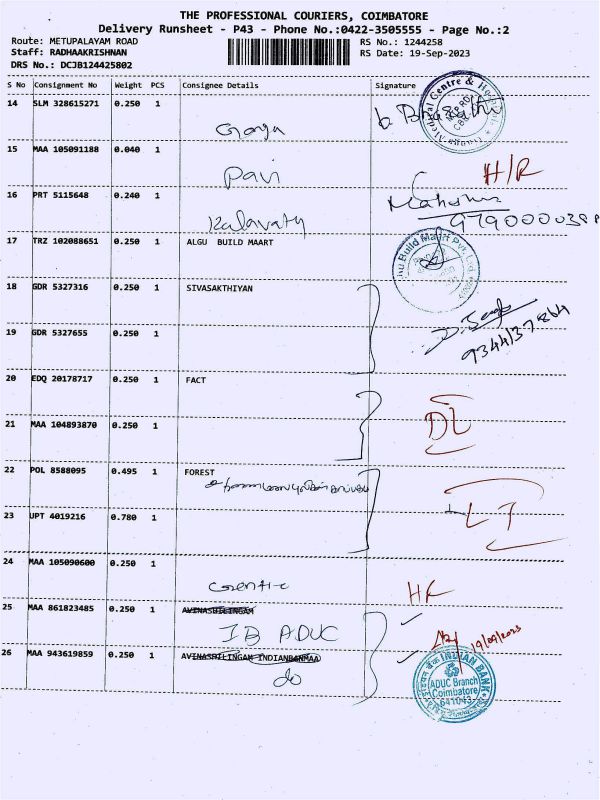 THE PROFESSIONAL COURIERS, COIMBATORE
Delivery Runsheet - P43 - Phone No.:0422-3505555 - Page No.:2
Route: METUPALAYAM ROAD RS No.: 1244258
Staff: RADHAAKRISHNAN RS Date: 19-Sep-2023
DRS No.: DCJB124425802
S No Consignment No Weight PCS Consignee Details Signature
14 SLM 328615271 0.250 1
Ganga
15 MAA 105091188 0.040 1
Pavi H/R
16 PRT 5115648 0.240 1
Kalavathy
17 TRZ 102088651 0.250 1 ALGU BUILD MAART
18 GDR 5327316 0.250 1 SIVASAKTHIYAN
19 GDR 5327655 0.250 1
20 EDQ 20178717 0.250 1 FACT
21 MAA 104893870 0.250 1
22 POL 8588095 0.495 1 FOREST
23 UPT 4019216 0.780 1
24 MAA 105090600 0.250 1
HR
25 MAA 861823485 0.250 1 AVINASHILINGAM
IB ADUC
19/09/2023
26 MAA 943619859 0.250 1 AVINASHILINGAM INDIANBANMAA
do
INDIAN BANK
ADUC Branch
Coimbatore
641043